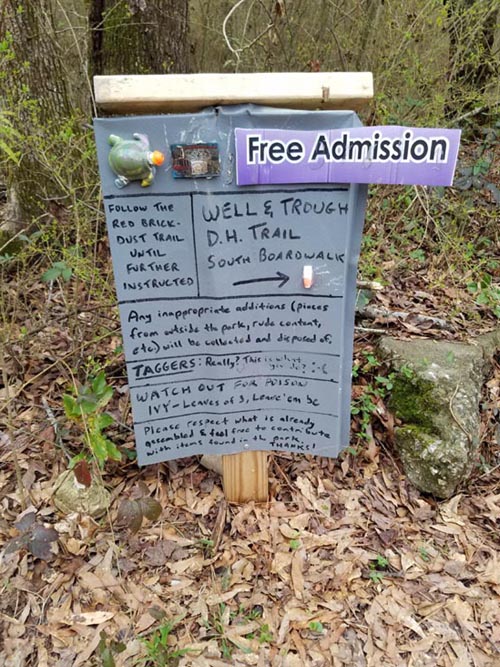 Free Admission
FOLLOW THE
RED BRICK-
DUST TRAIL
UNTIL
FURTHER
INSTRUCTED
WELL & TROUGH
D.H. TRAIL
SOUTH BOARDWALK
Any inappropriate additions (pieces
from outside the park, rude content,
etc) will be collected and disposed of.
TAGGERS: Really? This is what
you do? :-(
WATCH OUT FOR POISON
IVY - Leaves of 3, Leave 'em be
Please respect what is already
assembled & feel free to contribute
with items found in the park.
THANKS!